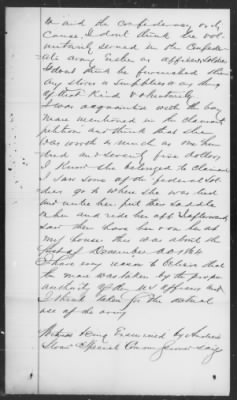 to and the confederacy only
cause, I dont think he vol-
untarily served in the Confede-
rate army either as officer, soldier
I dont think he furnished them
any stores or supplies or any thing
of that Kind voluntarily
I was acquainted with the bay
mare mentioned in the claimant
petition and think that she
was worth as much as one hun-
dred and seventy five dollars,
I Know she belonged to claimant
I saw some of the federal sol-
diers go to where she was tied
and untie her put their saddle
on her and ride her off I afterward
saw them have her on he at
my house this was about the
first of December AD 1864
I have every reason to believe that
the mare was taken by the proper
authority of the US officers and
I think taken for the actual
use of the army
Witness being Examined by Andrew
Sloan Special Commissioner says